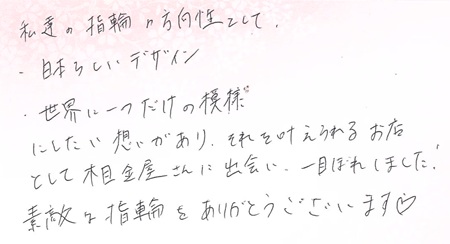 私達の指輪の方向性として、
・日本らしいデザイン
・世界に一つだけの模様
にしたい想いがあり、それを叶えられるお店
として杢目金屋さんに出会い、一目ぼれしました!
素敵な指輪をありがとうございます♡